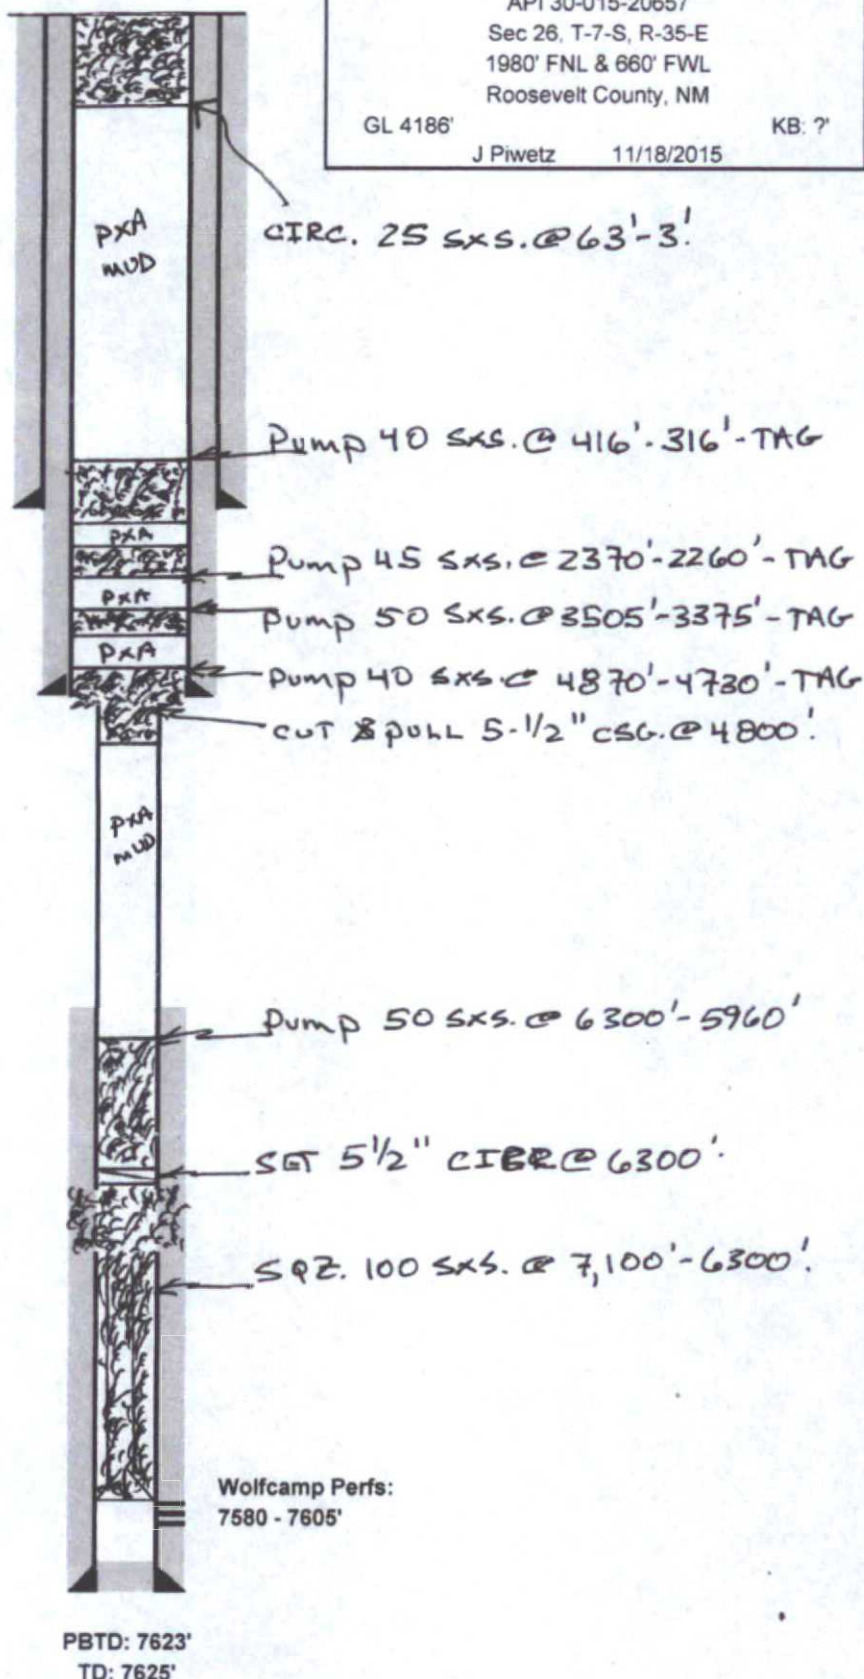 API 30-015-20657
Sec 26, T-7-S, R-35-E
1980' FNL & 660' FWL
Roosevelt County, NM
GL 4186' KB: ?'
J Piwetz 11/18/2015
PXA
MUD
CIRC. 25 SXS. @ 63'-3'.
Pump 40 SXS. @ 416'-316'-TAG
PXA
Pump 45 SXS. @ 2370'-2260'-TAG
PXA
Pump 50 SXS. @ 3505'-3375'-TAG
PXA
Pump 40 SXS. @ 4870'-4730'-TAG
CUT & PULL 5-1/2" CSG. @ 4800'.
PXA
MUD
Pump 50 SXS. @ 6300'-5960'
SET 5 1/2" @ 6300'.
SQZ. 100 SXS. @ 7,100'-6300'.
Wolfcamp Perfs:
7580 - 7605'
PBTD: 7623'
TD: 7625'